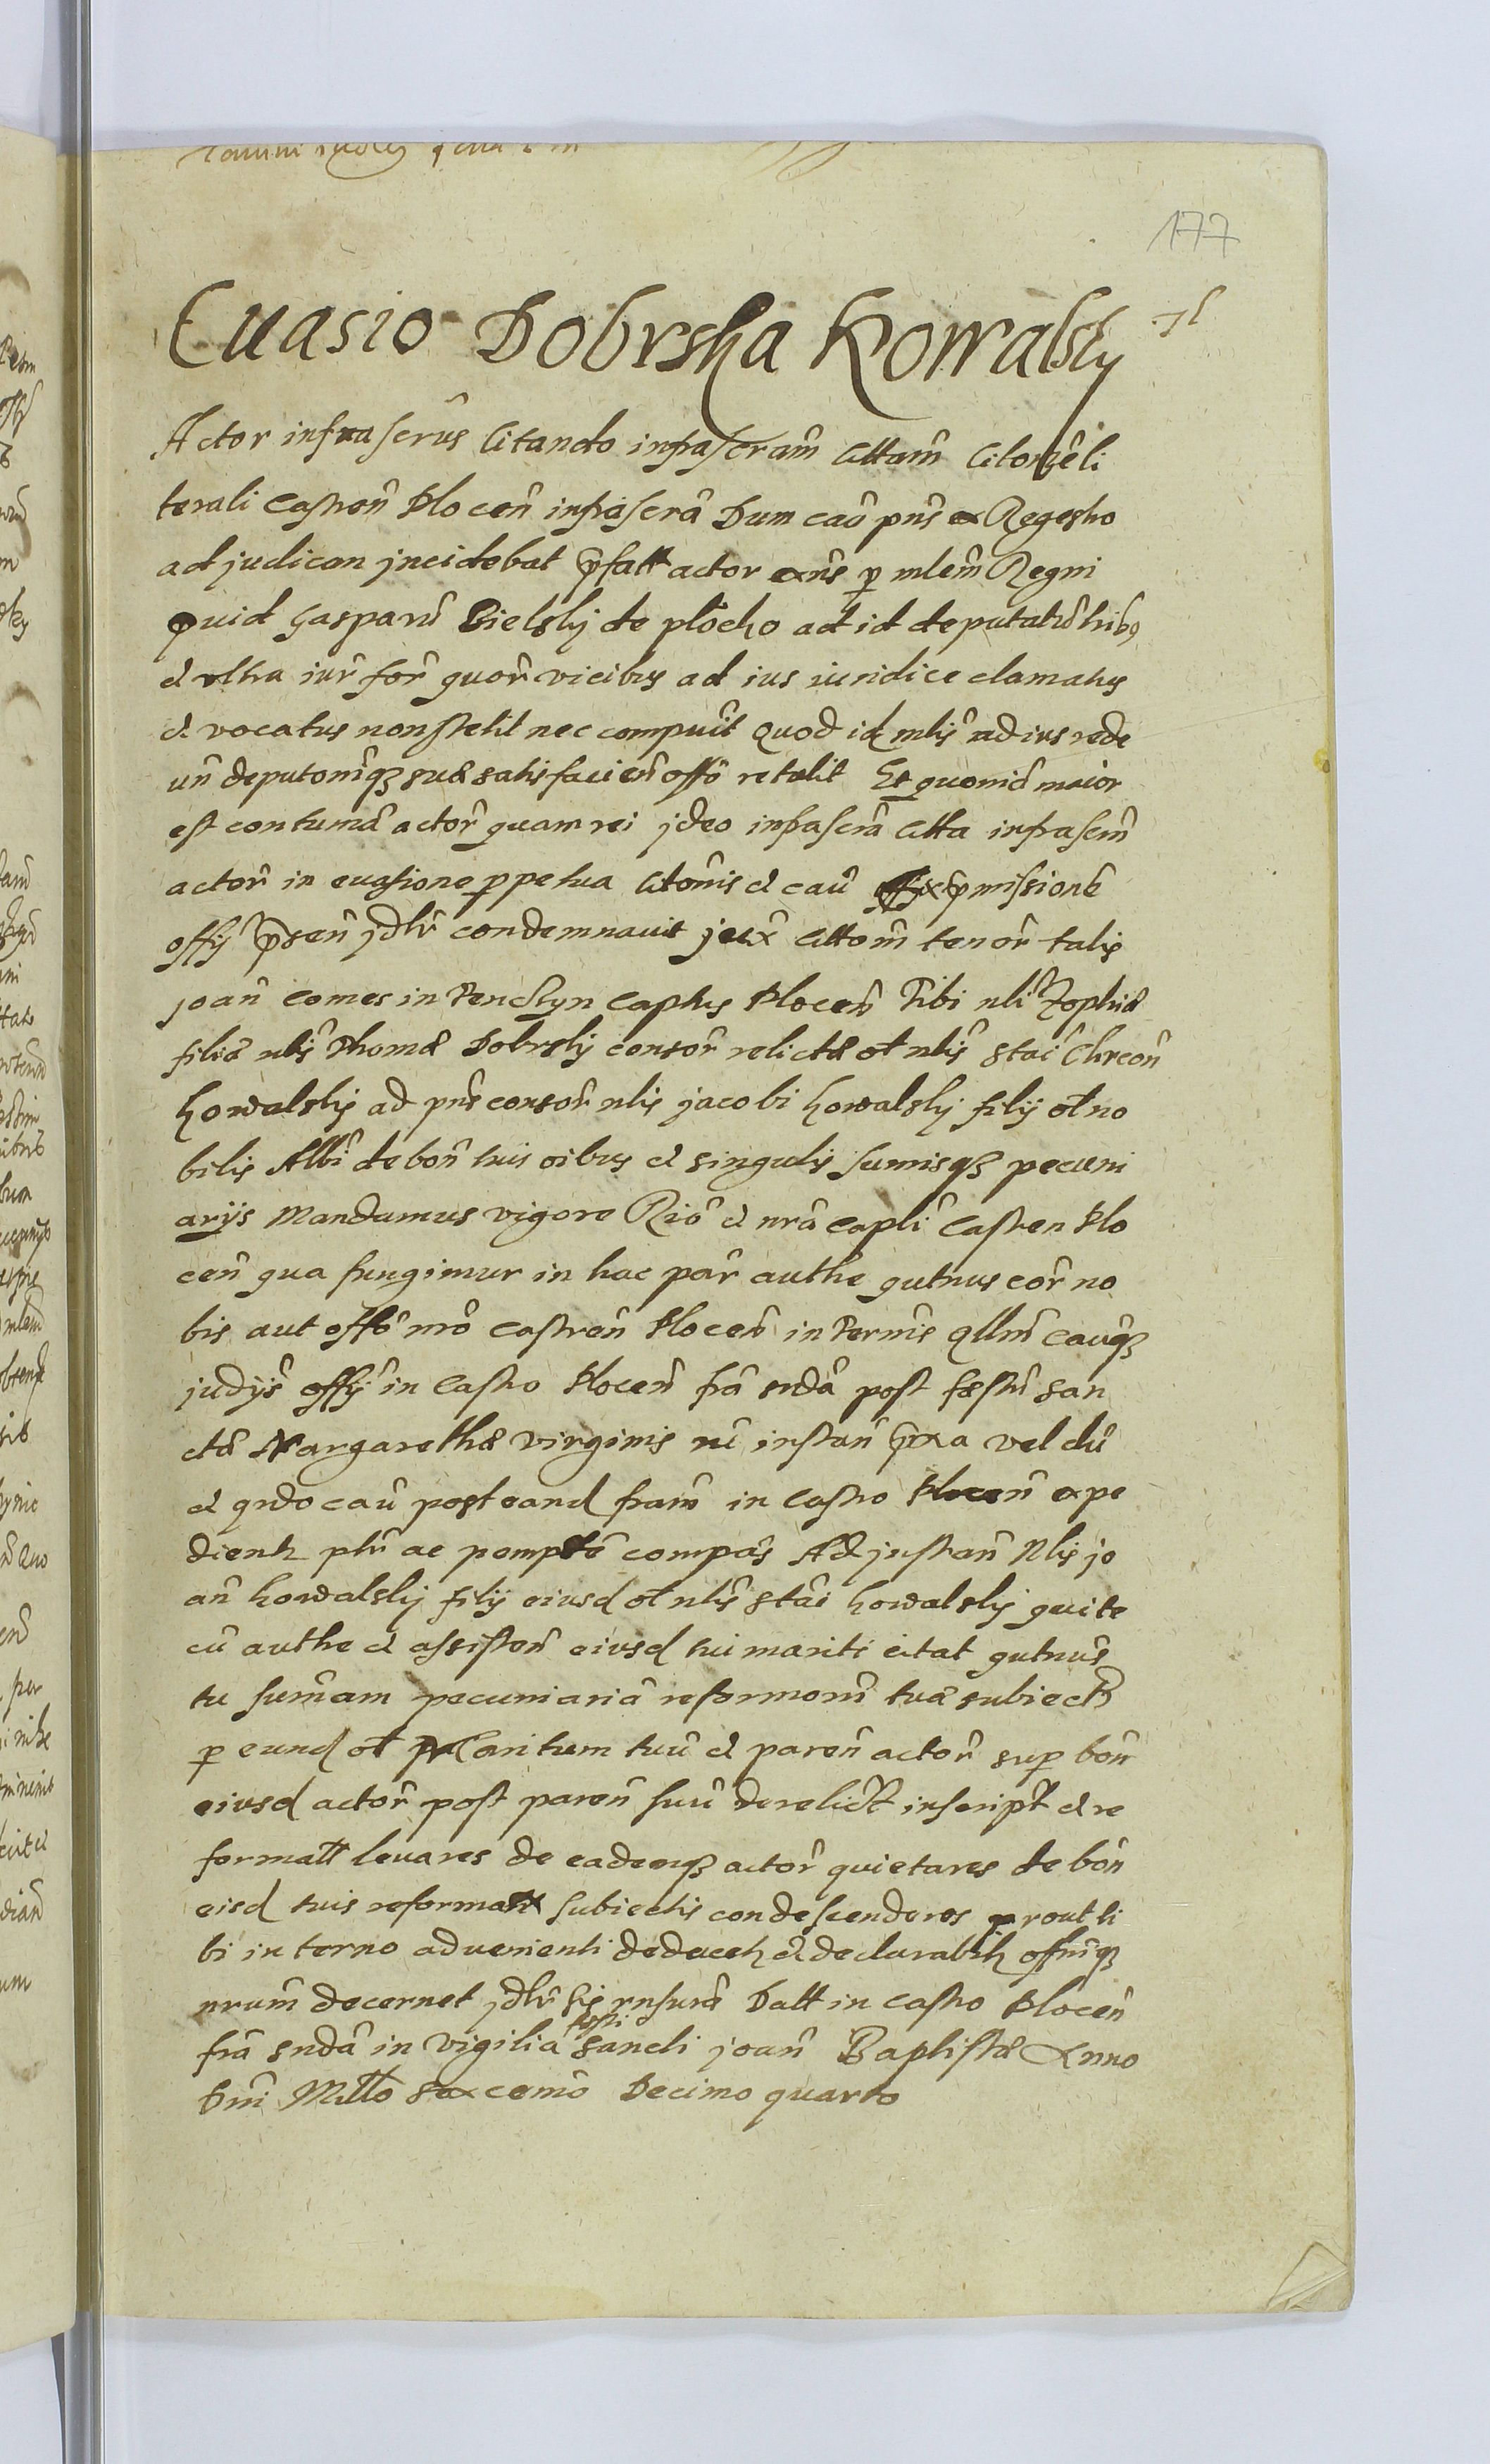 177
Evasio Dobrska Kowalsky
Actor infrascrûs Citando infrascram̃ Cittam̃ Citom̃e li
terali Castren̂ Plocen̂ infrascrâ Dum caû pns̃ ex Regestro
ad judican incidebat p̃fatt actor exñs p mlem̃ Regni
Gasparũ Bielsky de plocko ad id deputatũ tribq
et ultra iur̃ for̃ quor̃ vicibus ad ius iuridice clamatus
et vocatus non stetit nec compuît Quod id mlis̃ ad ius rede
un̂ deputonĩqz sua satisfacien̂ offõ retulit Et quoniã maior
est contumã actor̃ quam rei jdeo infrascrã Citta infrascrm̃
actor̃ in evasione ppetua Citonis̃ et caũ ex p̃missione
offÿ p̃sen̂ jdlr̃ condemnavit Cittom̃ tenor̃ talis
joan̂ Comes in Captus Plocen̂ Tibi nli Zophiæ
filiæ nlis̃ Thomæ Dobrsky consor̃ relictæ ol nlis̃ stai
Kowalsky ad pns̃ consor̃ nlis jacobi Kowalsky filÿ ol no
bilis Albĩ de bon̂ tuis oibus et singulis sumisqz pecuni
arÿs Mandamus vigore Riõ et nrã capli Castren Plo
cen̂ qua fungimur in hac par̃ authe qutnus cor̃ no
bis aut offõ nrõ Castren̂ Plocen̂ in Termis̃ qllm̃ Cauqz
judÿs̃ offÿ in Castro Plocen̂ frã sndã post festũ san
ctæ Margarethæ virginis nũ instan̂ p̃xa vel dũ
et qndo caũ post eand fram̃ in Castro Plocen̂ expe
dientr plr̃ ac pomptẽ compas̃ Ad jnstan̂ Nlis jo
an̂ Kowalsky filÿ eiusd ol nlis̃ stãi Kowalsky qui te
cũ authe et assisten̂ eiusd tui mariti citat qutnus̃
tu sum̃am pecuniariã reformonĩ tuæ subiect
p eund ol Maritum tuũ et paren̂ actor̃ sup bon̂
eiusd actor̃ post paren̂ suũ derelict inscript et re
formatt levares de eademqz actor̃ quietares de bon̂
eisd tuis reformatt subiectis condescenderes prout ti
bi in termo advenienti deducetr et declarabitr offmqz
nrum̃ decernet jdlr̃ sis rnsurã Datt in Castro Plocen̂
frã sndã in vigilia festi sancti joan̂ Baptistæ Anno
Dni Millõ sexcemõ Decimo quarto